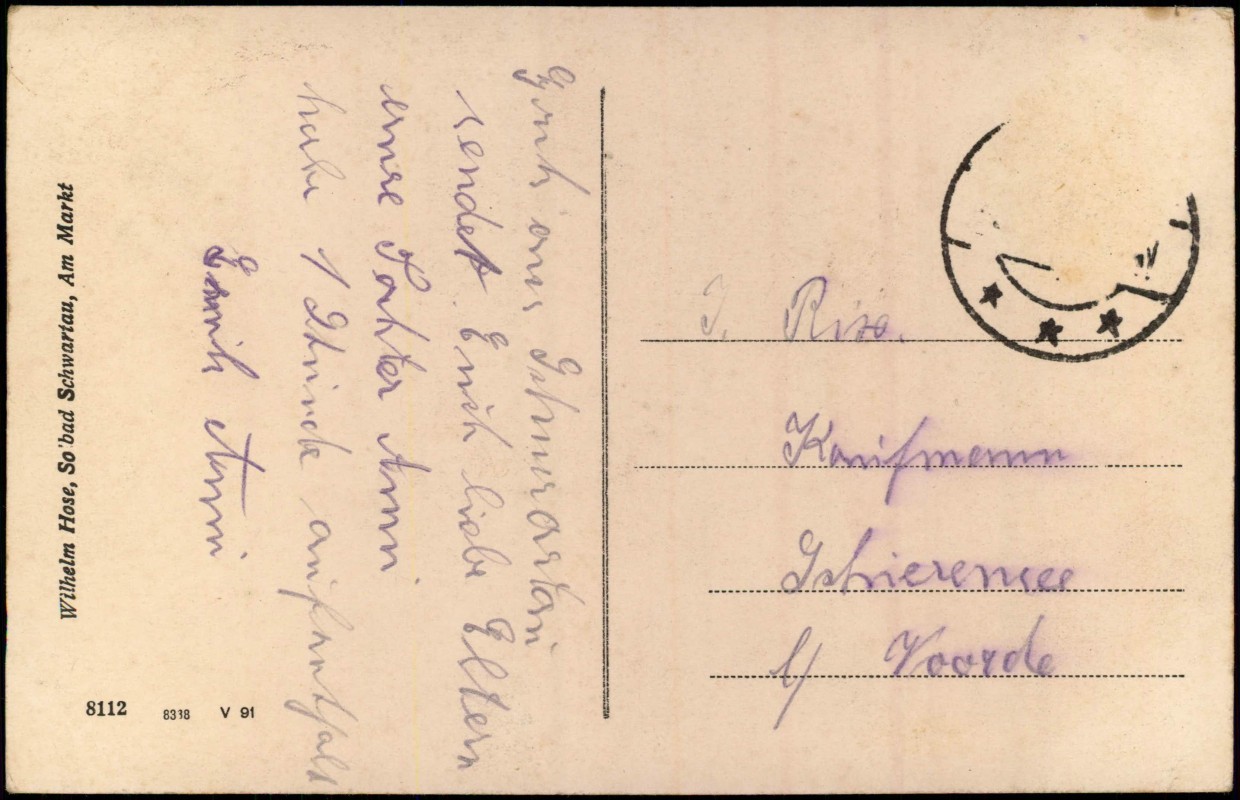 Gruß aus Schwartau
sendet Euch liebe Eltern
eure Tochter Anni
habe 1 Stunde aufenthalt
Gruß Anni
J. Rixe.
Kaufmann
Schierensee
b/ Voorde
Wilhelm Hose, So'bad Schwartau, Am Markt
8112 8338 V 91